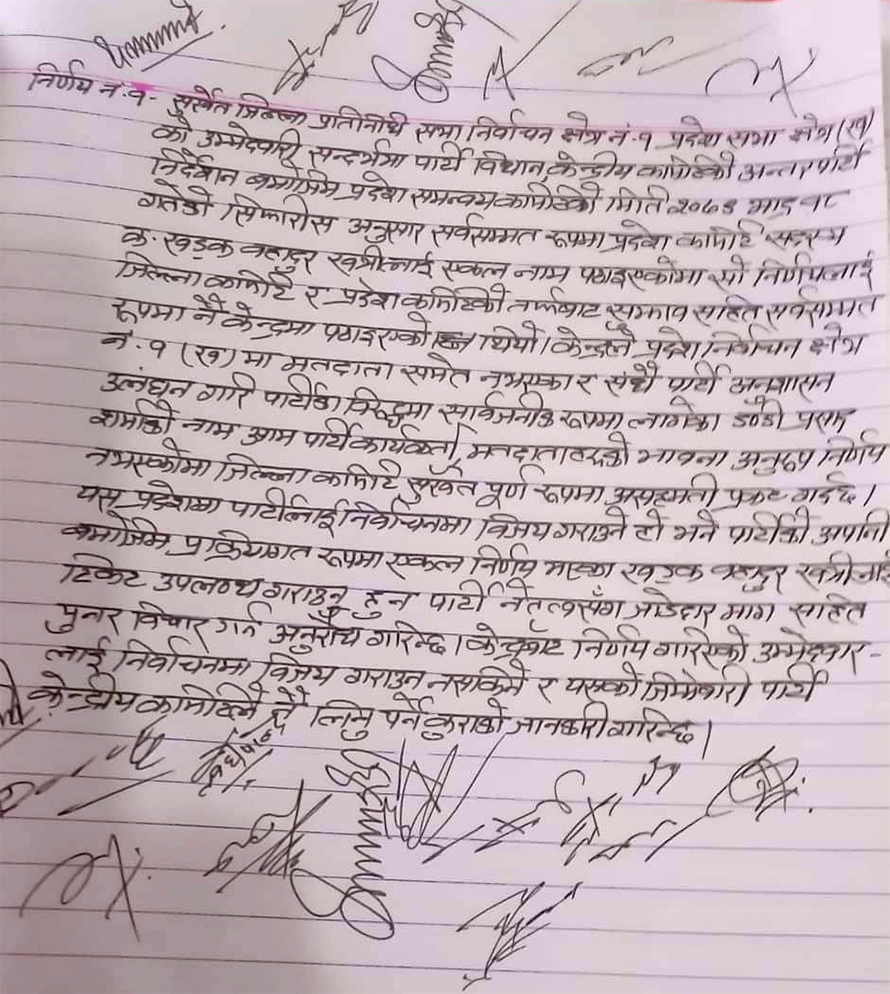 निर्णय नं.१- सुर्खेत जिल्ला प्रतिनिधि सभा निर्वाचन क्षेत्र नं. १ प्रदेश सभा क्षेत्र (ख)
को उम्मेदवारी सन्दर्भमा पार्टी विधान, केन्द्रीय कमिटिको अन्तरपार्टी
निर्देशन बमोजिम प्रदेश समन्वय कमिटिको मिति २०७४ भाद्र १८
गतेको सिफारिस अनुसार सर्वसम्मत रूपमा प्रदेश कमिटि सदस्य
क. खड्क बहादुर खत्रीलाई एकल नाम पठाइएकोमा सो निर्णयलाई
जिल्ला कमिटि र प्रदेश कमिटिको तर्फबाट सुझाव सहित सर्वसम्मत
रूपमा नै केन्द्रमा पठाइएको थियो। केन्द्रले प्रदेश निर्वाचन क्षेत्र
नं. १ (ख) मा मतदाता समेत नभएका र संधै पार्टी अनुशासन
उलंघन गरि पार्टीका विरुद्धमा सार्वजनिक रूपमा लागेका डण्डी प्रसाद
शर्माको नाम आम पार्टी कार्यकर्ता, मतदाताहरूको भावना अनुरूप निर्णय
नभएकोमा जिल्ला कमिटि सुर्खेत पूर्ण रूपमा असहमती प्रकट गर्दछ।
यस प्रदेशमा पार्टीलाई निर्वाचनमा विजय गराउने हो भने पार्टीको
बमोजिम प्रक्रियागत रूपमा एकल निर्णय भएका खड्क बहादुर खत्रीलाई
टिकेट उपलब्ध गराउनु हुन पार्टी नेतृत्वसँग जोडदार माग सहित
पुनर विचार गर्न अनुरोध गरिन्छ। केन्द्रबाट निर्णय गरिएको उम्मेदवार-
लाई निर्वाचनमा विजय गराउन नसकिने र यसको जिम्मेवारी पार्टी
केन्द्रीय कमिटिले नै लिनु पर्ने कुराको जानकारी गरिन्छ।